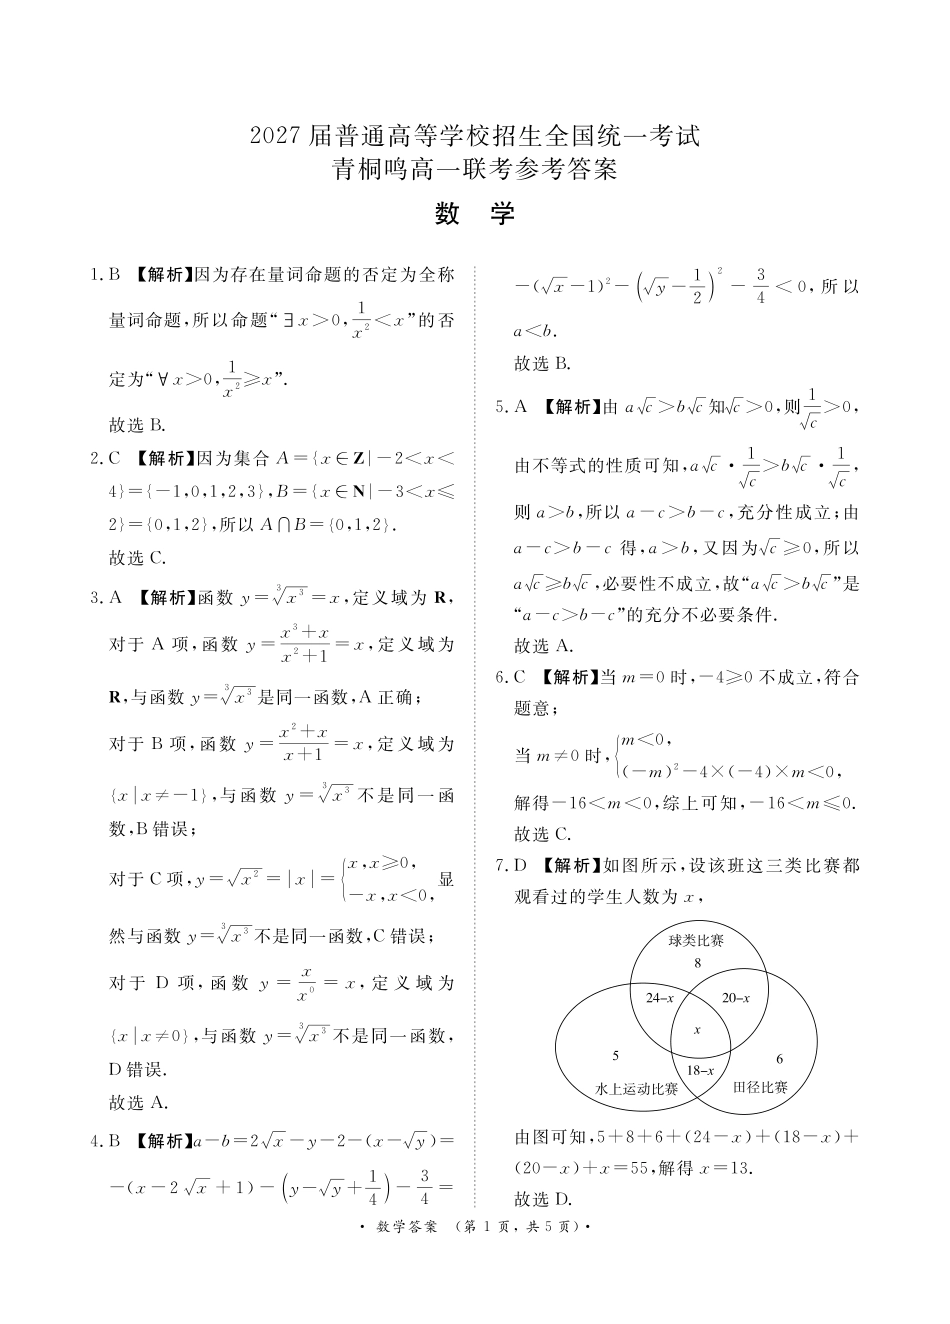 2027 届普通高等学校招生全国统一考试
青桐鸣高一联考参考答案
数 学
1. B 【解析】因为存在量词命题的否定为全称
量词命题,所以命题“∃x>0,1/x²<x”的否
定为“∀x>0,1/x²≥x”.
故选 B.
2. C 【解析】因为集合 A={x∈Z|-2<x<
4}={-1,0,1,2,3},B={x∈N|-3<x≤
2}={0,1,2},所以 A∩B={0,1,2}.
故选 C.
3. A 【解析】函数 y=∛x³=x,定义域为 R,
对于 A 项,函数 y=(x³+x)/(x²+1)=x,定义域为
R,与函数 y=∛x³是同一函数,A 正确;
对于 B 项,函数 y=(x²+x)/(x+1)=x,定义域为
{x|x≠-1},与函数 y=∛x³ 不是同一函
数,B 错误;
对于 C 项,y=√x²=|x|={x,x≥0, -x,x<0, 显
然与函数 y=∛x³不是同一函数,C 错误;
对于 D 项,函数 y=x/x⁰=x,定义域为
{x|x≠0},与函数 y=∛x³ 不是同一函数,
D 错误.
故选 A.
4. B 【解析】a-b=2√x-y-2-(x-√y)=
-(x-2√x+1)-(y-√y+1/4)-3/4=
-(√x-1)²-(√y-1/2)²-3/4<0,所以
a<b.
故选 B.
5. A 【解析】由 a√c>b√c知√c>0,则1/√c>0,
由不等式的性质可知,a√c·1/√c>b√c·1/√c,
则 a>b,所以 a-c>b-c,充分性成立;由
a-c>b-c 得,a>b,又因为√c≥0,所以
a√c≥b√c,必要性不成立,故“a√c>b√c”是
“a-c>b-c”的充分不必要条件.
故选 A.
6. C 【解析】当 m=0 时,-4≥0 不成立,符合
题意;
当 m≠0 时,{m<0, (-m)²-4×(-4)×m<0,
解得-16<m<0,综上可知,-16<m≤0.
故选 C.
7. D 【解析】如图所示,设该班这三类比赛都
观看过的学生人数为 x,
球类比赛
8
24-x 20-x
x
5 6
18-x
水上运动比赛 田径比赛
由图可知,5+8+6+(24-x)+(18-x)+
(20-x)+x=55,解得 x=13.
故选 D.
·数学答案 (第 1 页,共 5 页)·